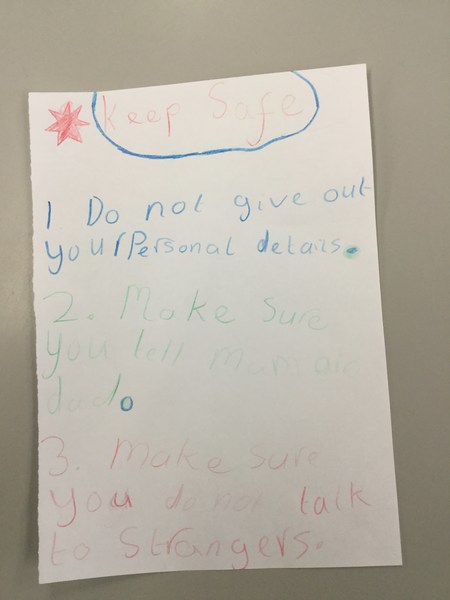 Keep Safe
1 Do not give out
your Personal details.
2. Make Sure
you tell mum or
dad.
3. Make sure
you do not talk
to Strangers.